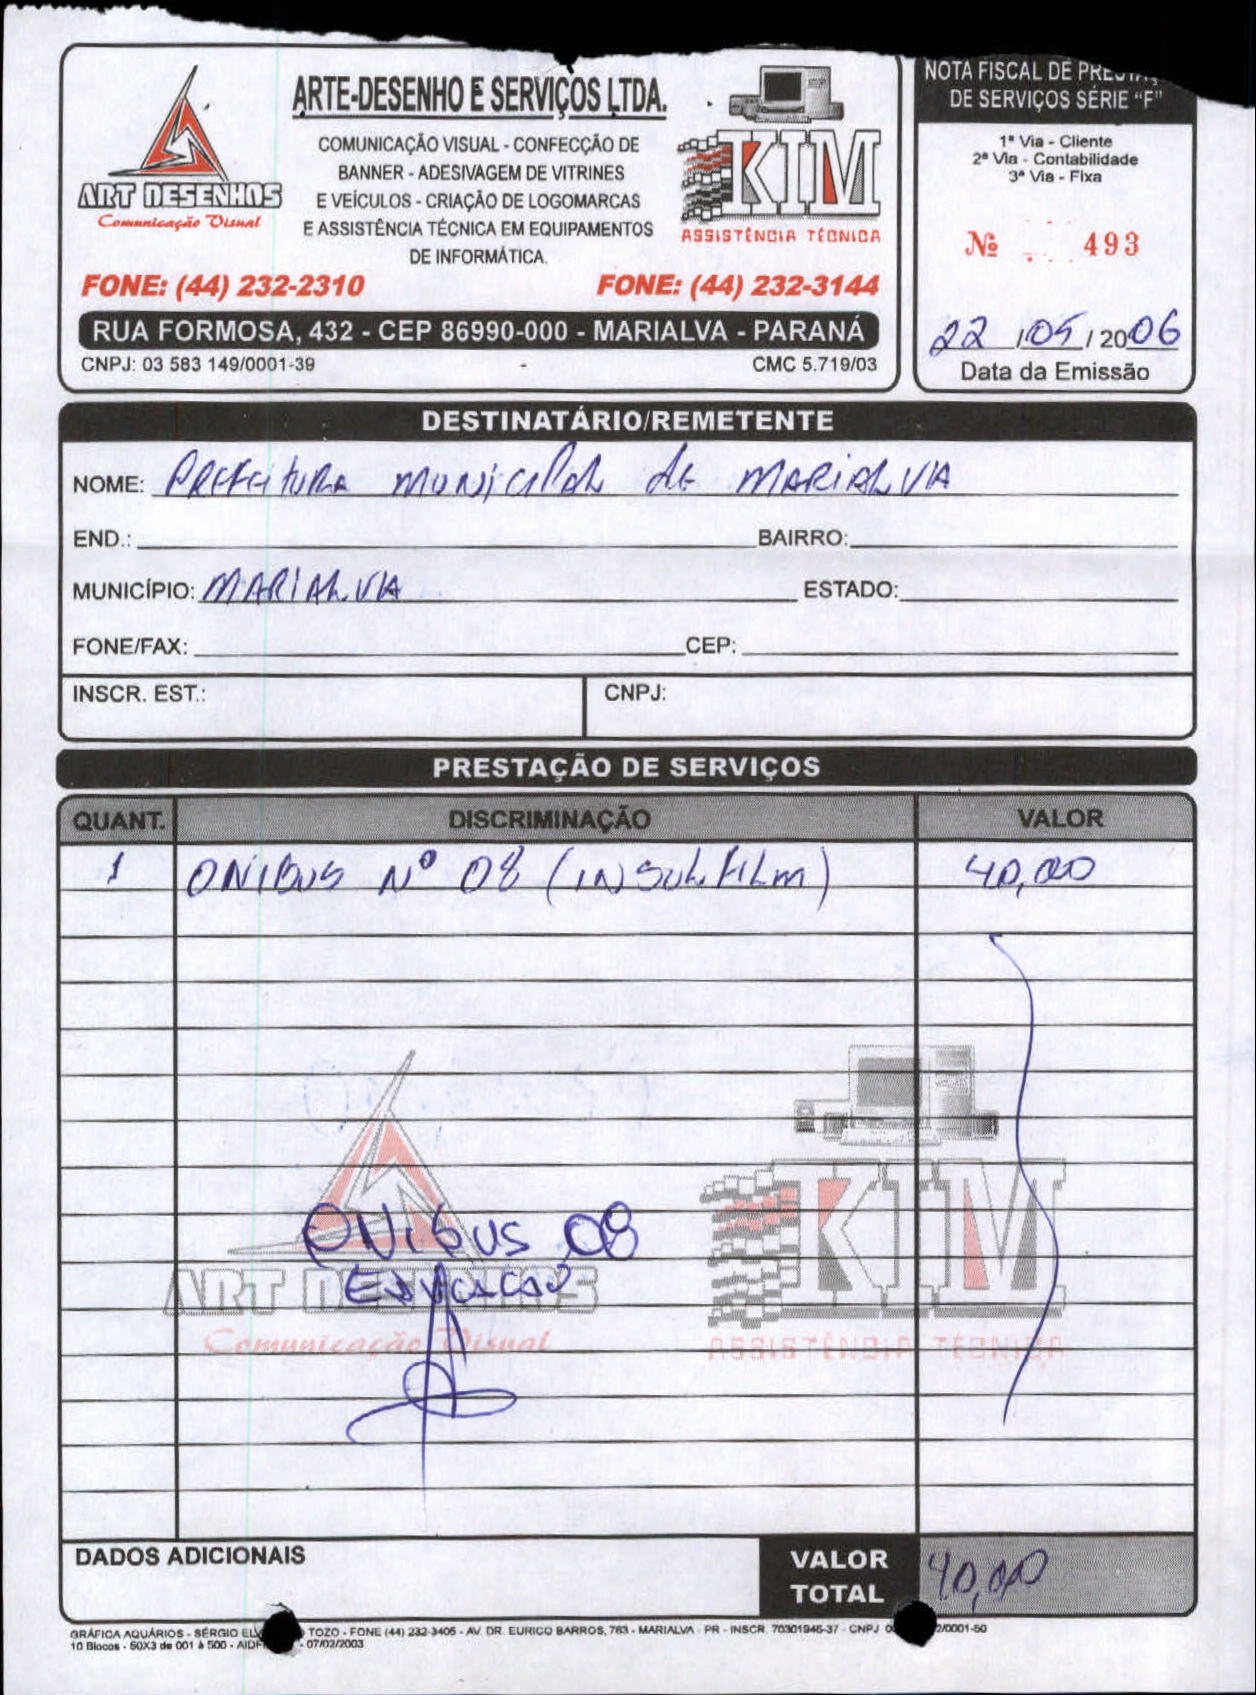 NOTA FISCAL DE
DE SERVIÇOS SÉRIE "F"
ARTE-DESENHO E SERVIÇOS LTDA.
COMUNICAÇÃO VISUAL - CONFECÇÃO DE
BANNER - ADESIVAGEM DE VITRINES
E VEÍCULOS - CRIAÇÃO DE LOGOMARCAS
E ASSISTÊNCIA TÉCNICA EM EQUIPAMENTOS
DE INFORMÁTICA.
ART DESENHOS
Comunicação Visual
KIM
ASSISTÊNCIA TÉCNICA
FONE: (44) 232-2310 FONE: (44) 232-3144
RUA FORMOSA, 432 - CEP 86990-000 - MARIALVA - PARANÁ
CNPJ: 03 583 149/0001-39 - CMC 5.719/03
1ª Via - Cliente
2ª Via - Contabilidade
3ª Via - Fixa
Nº 493
22 /05/ 2006
Data da Emissão
DESTINATÁRIO/REMETENTE
NOME: PREFEITURA MUNICIPAL DE MARIALVA
END.: BAIRRO:
MUNICÍPIO: MARIALVA ESTADO:
FONE/FAX: CEP:
INSCR. EST.: CNPJ:
PRESTAÇÃO DE SERVIÇOS
QUANT. DISCRIMINAÇÃO VALOR
1 ONIBUS Nº 08 (INSULFILM) 40,00
ONIBUS 08
EDUCACAO
ART DESENHOS
Comunicação Visual
KIM
ASSISTÊNCIA TÉCNICA
DADOS ADICIONAIS
VALOR TOTAL 40,00
GRÁFICA AQUÁRIOS - SÉRGIO TOZO - FONE (44) 232-3405 - AV. DR. EURICO BARROS, 763 - MARIALVA - PR - INSCR. 70301946-37 - CNPJ /0001-50
10 Blocos - 50X3 de 001 à 500 - - 07/02/2003